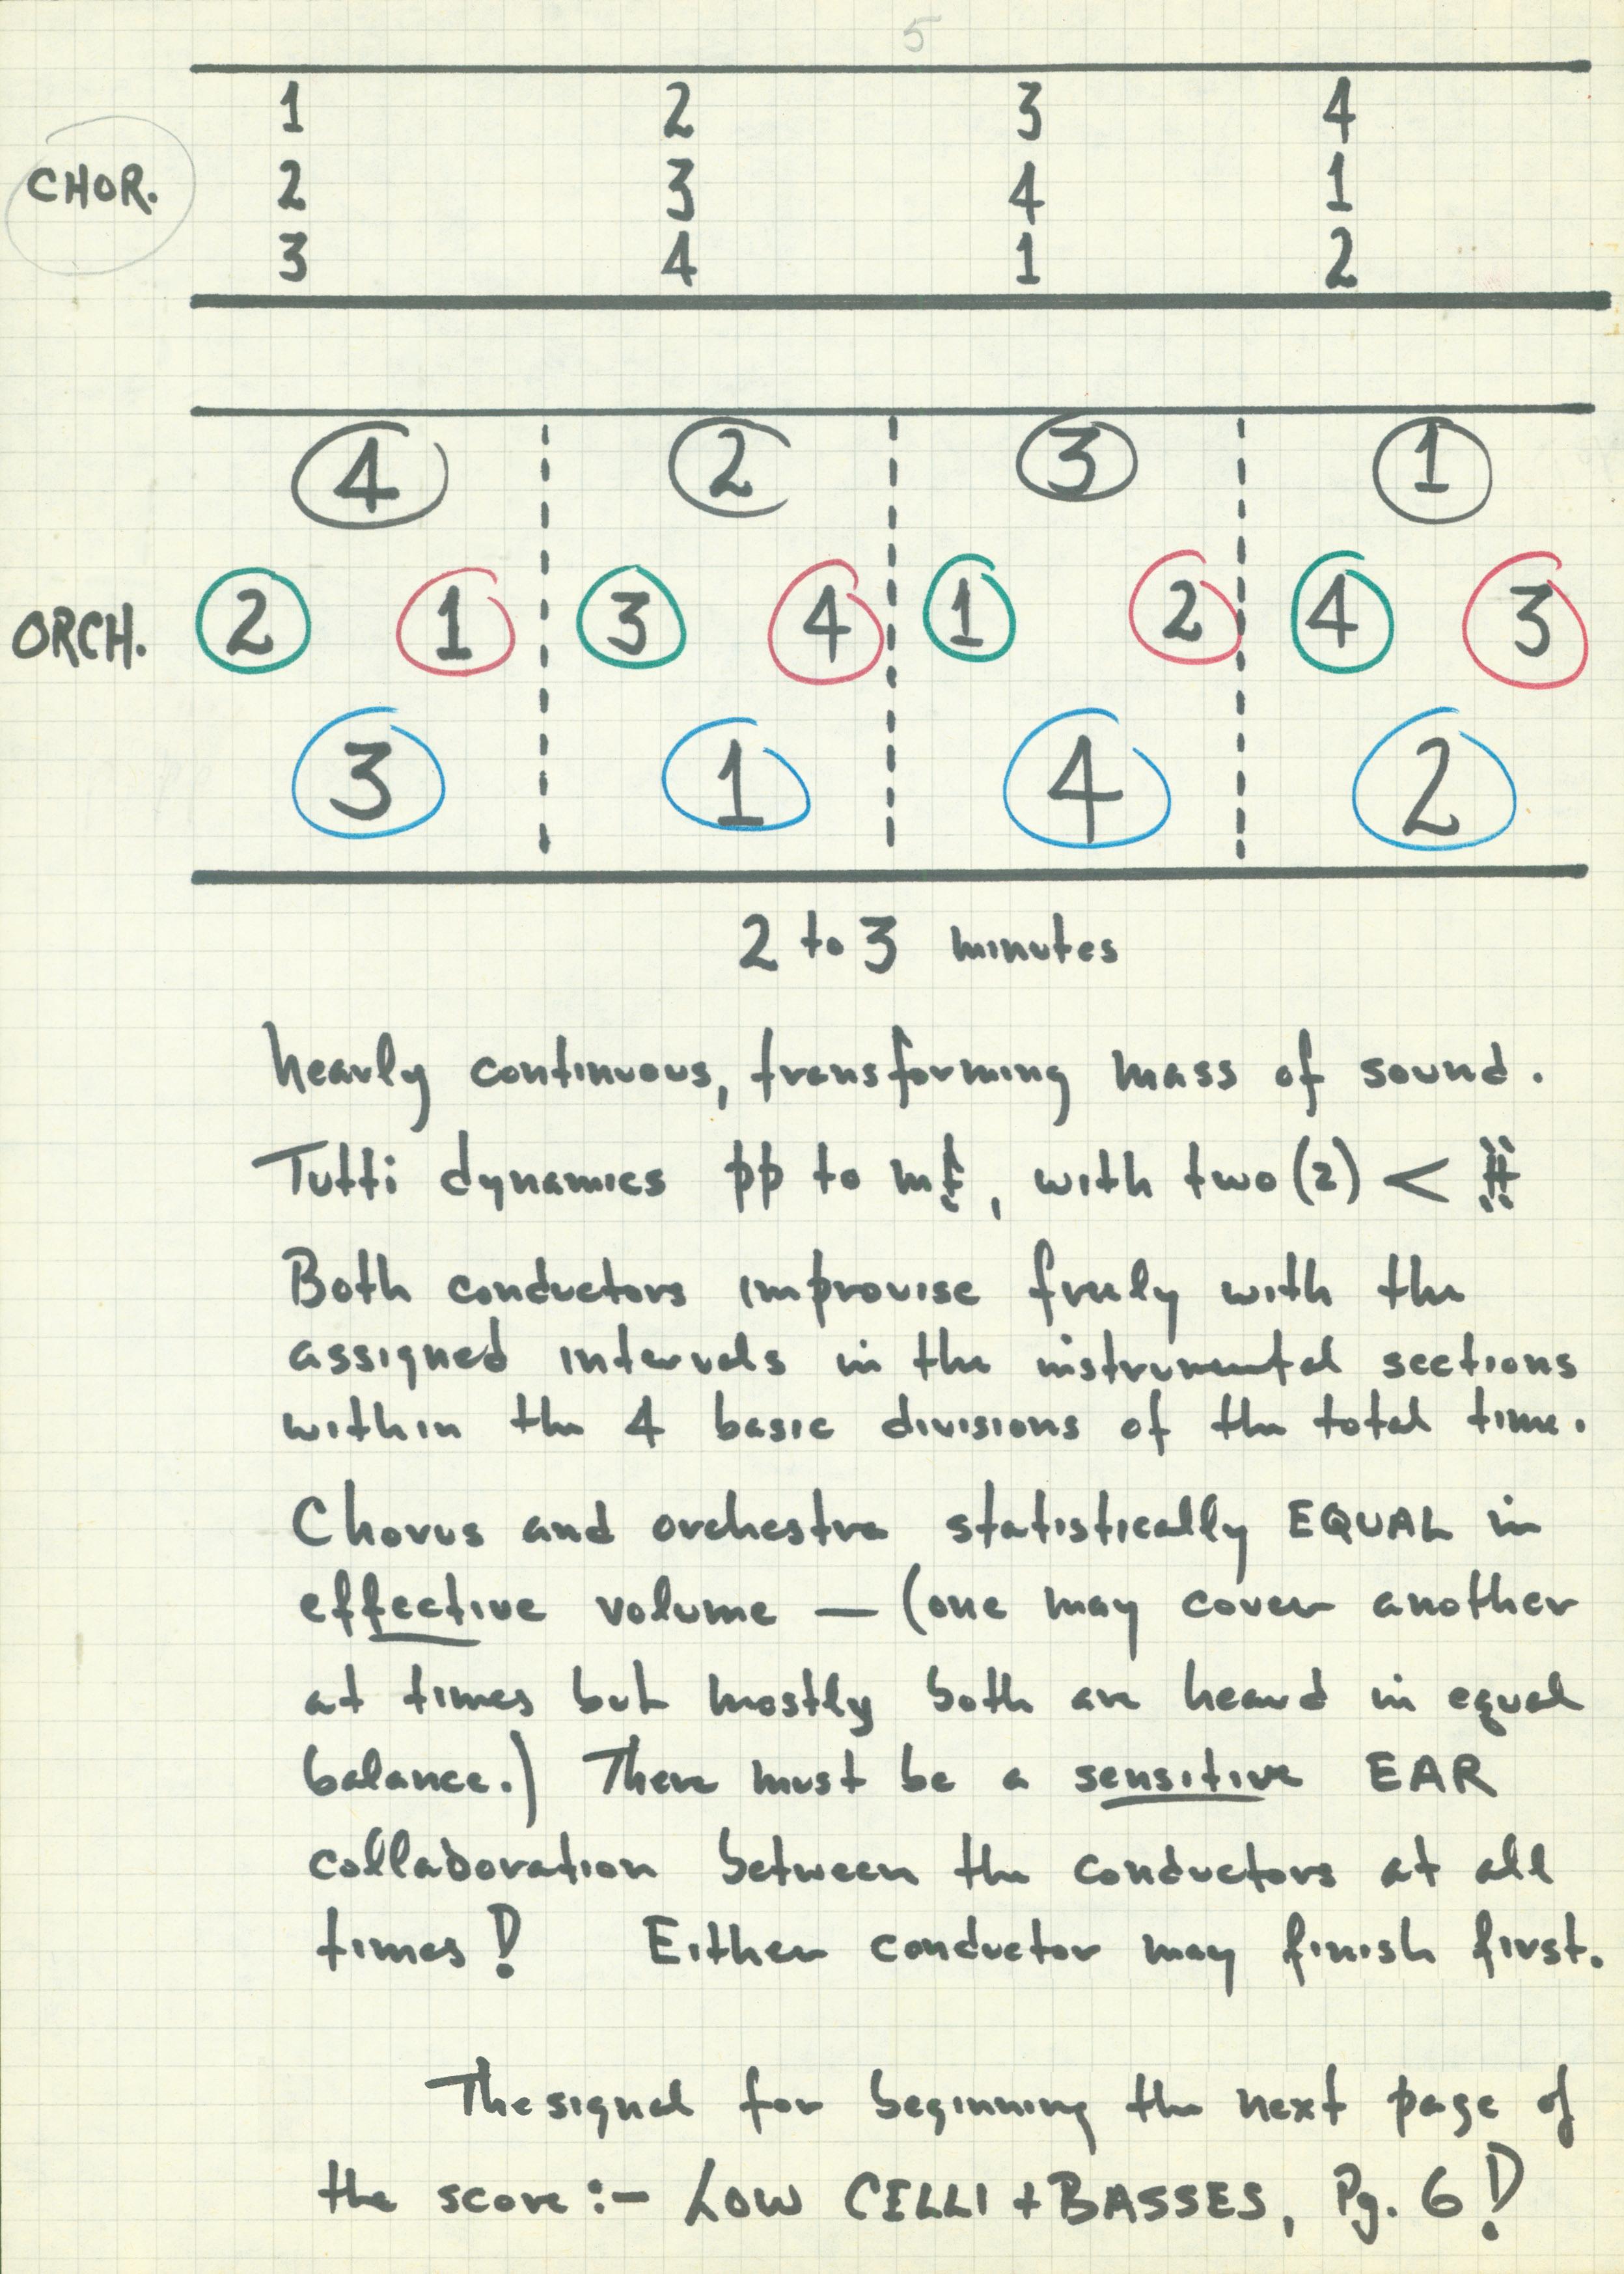 5
1 2 3 4
CHOR. 2 3 4 1
3 4 1 2
4 2 3 1
ORCH. 2 1 3 4 1 2 4 3
3 1 4 2
2 to 3 minutes
Nearly continuous, transforming mass of sound.
Tutti dynamics pp to mf, with two (2) < ff
Both conductors improvise freely with the
assigned intervals in the instrumental sections
within the 4 basic divisions of the total time.
Chorus and orchestra statistically EQUAL in
effective volume — (one may cover another
at times but mostly both are heard in equal
balance.) There must be a sensitive EAR
collaboration between the conductors at all
times! Either conductor may finish first.
The signal for beginning the next page of
the score :- LOW CELLI + BASSES, Pg. 6!